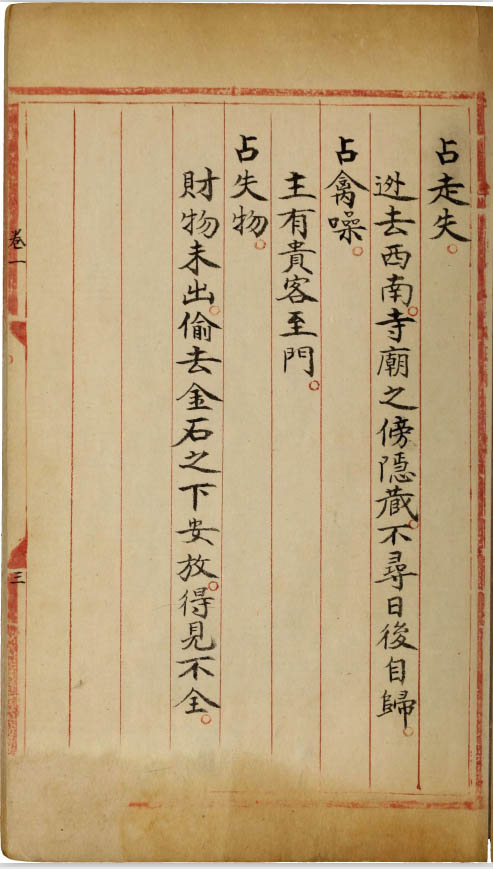 占走失。
逃去西南。寺廟之傍隱藏。不尋日後自歸。
占禽噪。
主有貴客至門。
占失物。
財物未出。偷去金石之下安放。得見不全。
卷一
三